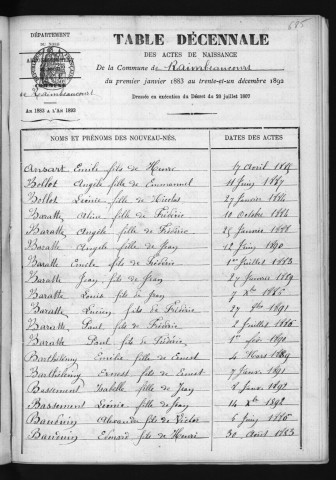 685
DÉPARTEMENT
TABLE DÉCENNALE
DES ACTES DE NAISSANCE
De la Commune de Raimbeaucourt
du premier janvier 1883 au trente-et-un décembre 1892
Dressée en exécution du Décret du 20 juillet 1807
de Raimbeaucourt
An 1883 à l'An 1892
NOMS ET PRÉNOMS DES NOUVEAU-NÉS. DATES DES ACTES
Ansart Emile fils de Henri 17 Avril
Bollot Angèle fille de Emmanuel 11 Juin 1887
Bollot Léonie fille de Nicolas 27 Janvier 1884
Baratte Aline fille de Frédéric 10 Octobre 1884
Baratte Angèle fille de Frédéric 15 Janvier 1888
Baratte Angèle fille de Jean 12 Juin 1890
Baratte Emile fils de Frédéric 1er Juillet 1883
Baratte Jean fils de Jean 27 Janvier 1889
Baratte Louis fils de Jean 7 Xbre 1886
Baratte Lucien fils de Frédéric 27 9bre 1891
Baratte Paul fils de Frédéric 2 Juillet 1886
Baratte Paul fils de Frédéric 1er fév 1890
Barthélémy Emilia fille de Ernest 4 Mars 1889
Barthélémy Ernest fils de Ernest 7 Janv 1891
Bassement Isabelle fille de Jean 8 Janv 1891
Bassement Léonie fille de Jean 14 Xbre 1892
Bauduin Alexandre fils de Victor 6 Juin 1886
Bauduin Edouard fils de Henri 30 Août 1883